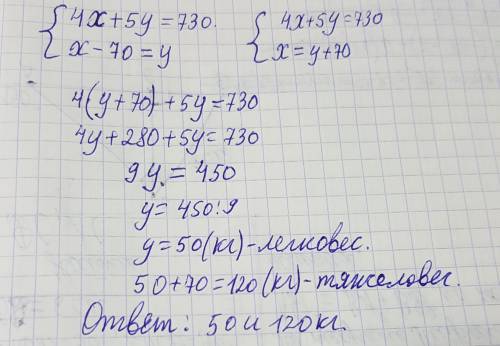 {4x+5y=730. {4x+5y=730
{x-70=y {x=y+70
4(y+70)+5y=730
4y+280+5y=730
9y=450
y=450:9
y=50(кг)-легковес.
50+70=120(кг)-тяжеловес.
Ответ: 50 и 120кг.